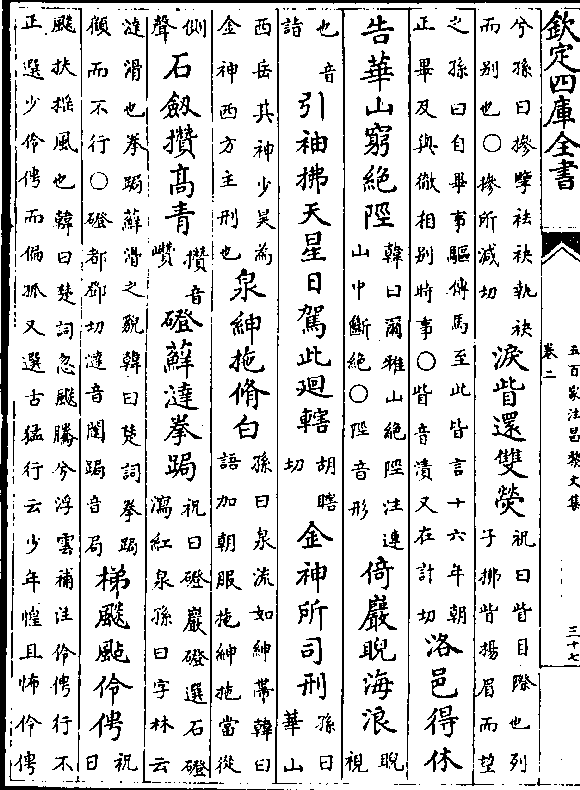 欽定四庫全書
五百家注昌黎文集
卷二
三十七
兮孫曰摻擥袪袂執袂
而别也〇摻所减切
淚眥還雙熒
祝曰眥目際也列
子拂眥揚眉而望
之孫曰自畢事驅傳馬至此皆言十六年朝
正畢及與徹相别時事〇眥音漬又在計切
洛邑得休
告華山窮絶陘
韓曰爾雅山絶陘注連
山中斷絶〇陘音形
倚巖睨海浪
睨
視
也音
詣
引袖拂天星日駕此廻轄
胡瞎
切
金神所司刑
孫曰
華山
西岳其神少昊為
金神西方主刑也
泉紳拖脩白
孫曰泉流如紳帶韓曰
語加朝服拖紳拖當從
側
聲
石劒攢高青
攢音
巑
磴蘚澾拳跼
祝曰磴巖磴選石磴
瀉紅泉孫曰字林云
澾滑也拳跼蘚滑之貌韓曰楚詞拳跼
顧而不行〇磴都鄧切澾音闥跼音局
梯飈颭伶俜
祝
曰
飈扶揺風也韓曰楚詞忽飈騰兮浮雲補注伶俜行不
正選少伶俜而偏孤又選古猛行云少年惶且怖伶俜